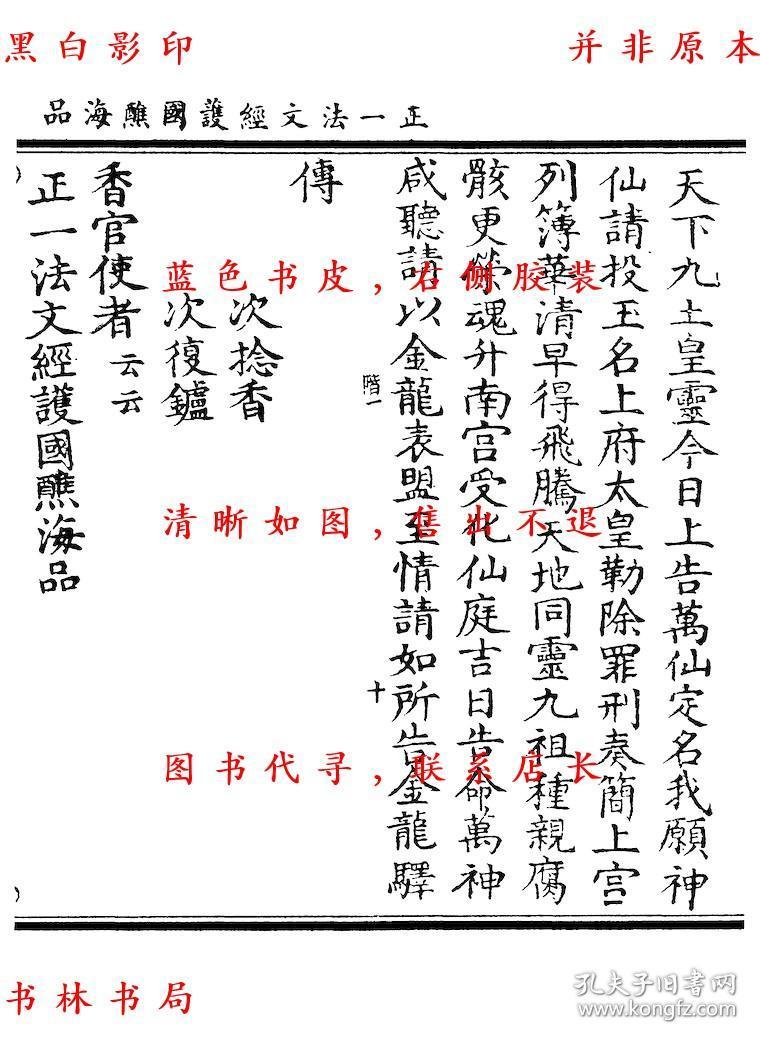 黑白影印
并非原本
正一法文經護國醮海品
天下九土皇靈今日上告萬仙定名我願神
仙請投玉名上府太皇勒除罪刑奏簡上宫
列簿華清早得飛騰天地同靈九祖種親腐
骸更榮魂升南宫受化仙庭吉日告命萬神
咸聽請以金龍表盟至情請如所告金龍驛
階一
十
傳
次捻香
次復鑪
香官使者云云
正一法文經護國醮海品
蓝色书皮,右侧胶装
清晰如图,售出不退
图书代寻,联系店长
书林书局
孔夫子旧书网
www.kongfz.com